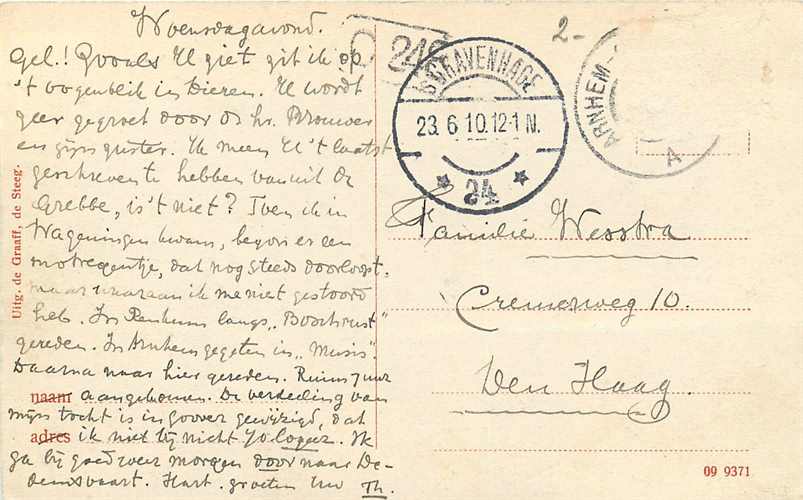 Woensdagavond.
Gel.! Zooals U ziet zit ik op
't oogenblik in Dieren. U wordt
zeer gegroet door ds hr. Brouwer
en zijn zuster. Ik meen U 't laatst
geschreven te hebben vanuit de
Grebbe, is 't niet? Toen ik in
Wageningen kwam, begon er een
motregentje, dat nog steeds doorloopt.
maar waaraan ik me niet gestoord
heb. In Renkum langs „Boschrust"
gereden. In Arnhem gegeten in „Musis".
Daarna naar hier gereden. Ruim 7 uur
naam aangekomen. De verdeeling van
mijn tocht is in zoover gewijzigd, dat
adres ik niet bij Nicht Jo loger. Ik
ga bij goed weer morgen door naar De-
demsvaart. Hart. groeten Uw Th.
Uitg. de Graaff, de Steeg.
246
'S GRAVENHAGE
23. 6 10. 12-1 N.
* 24 *
2-
ARNHEM
A
Familie Wesstra
Cremerweg 10.
Den Haag.
09 9371